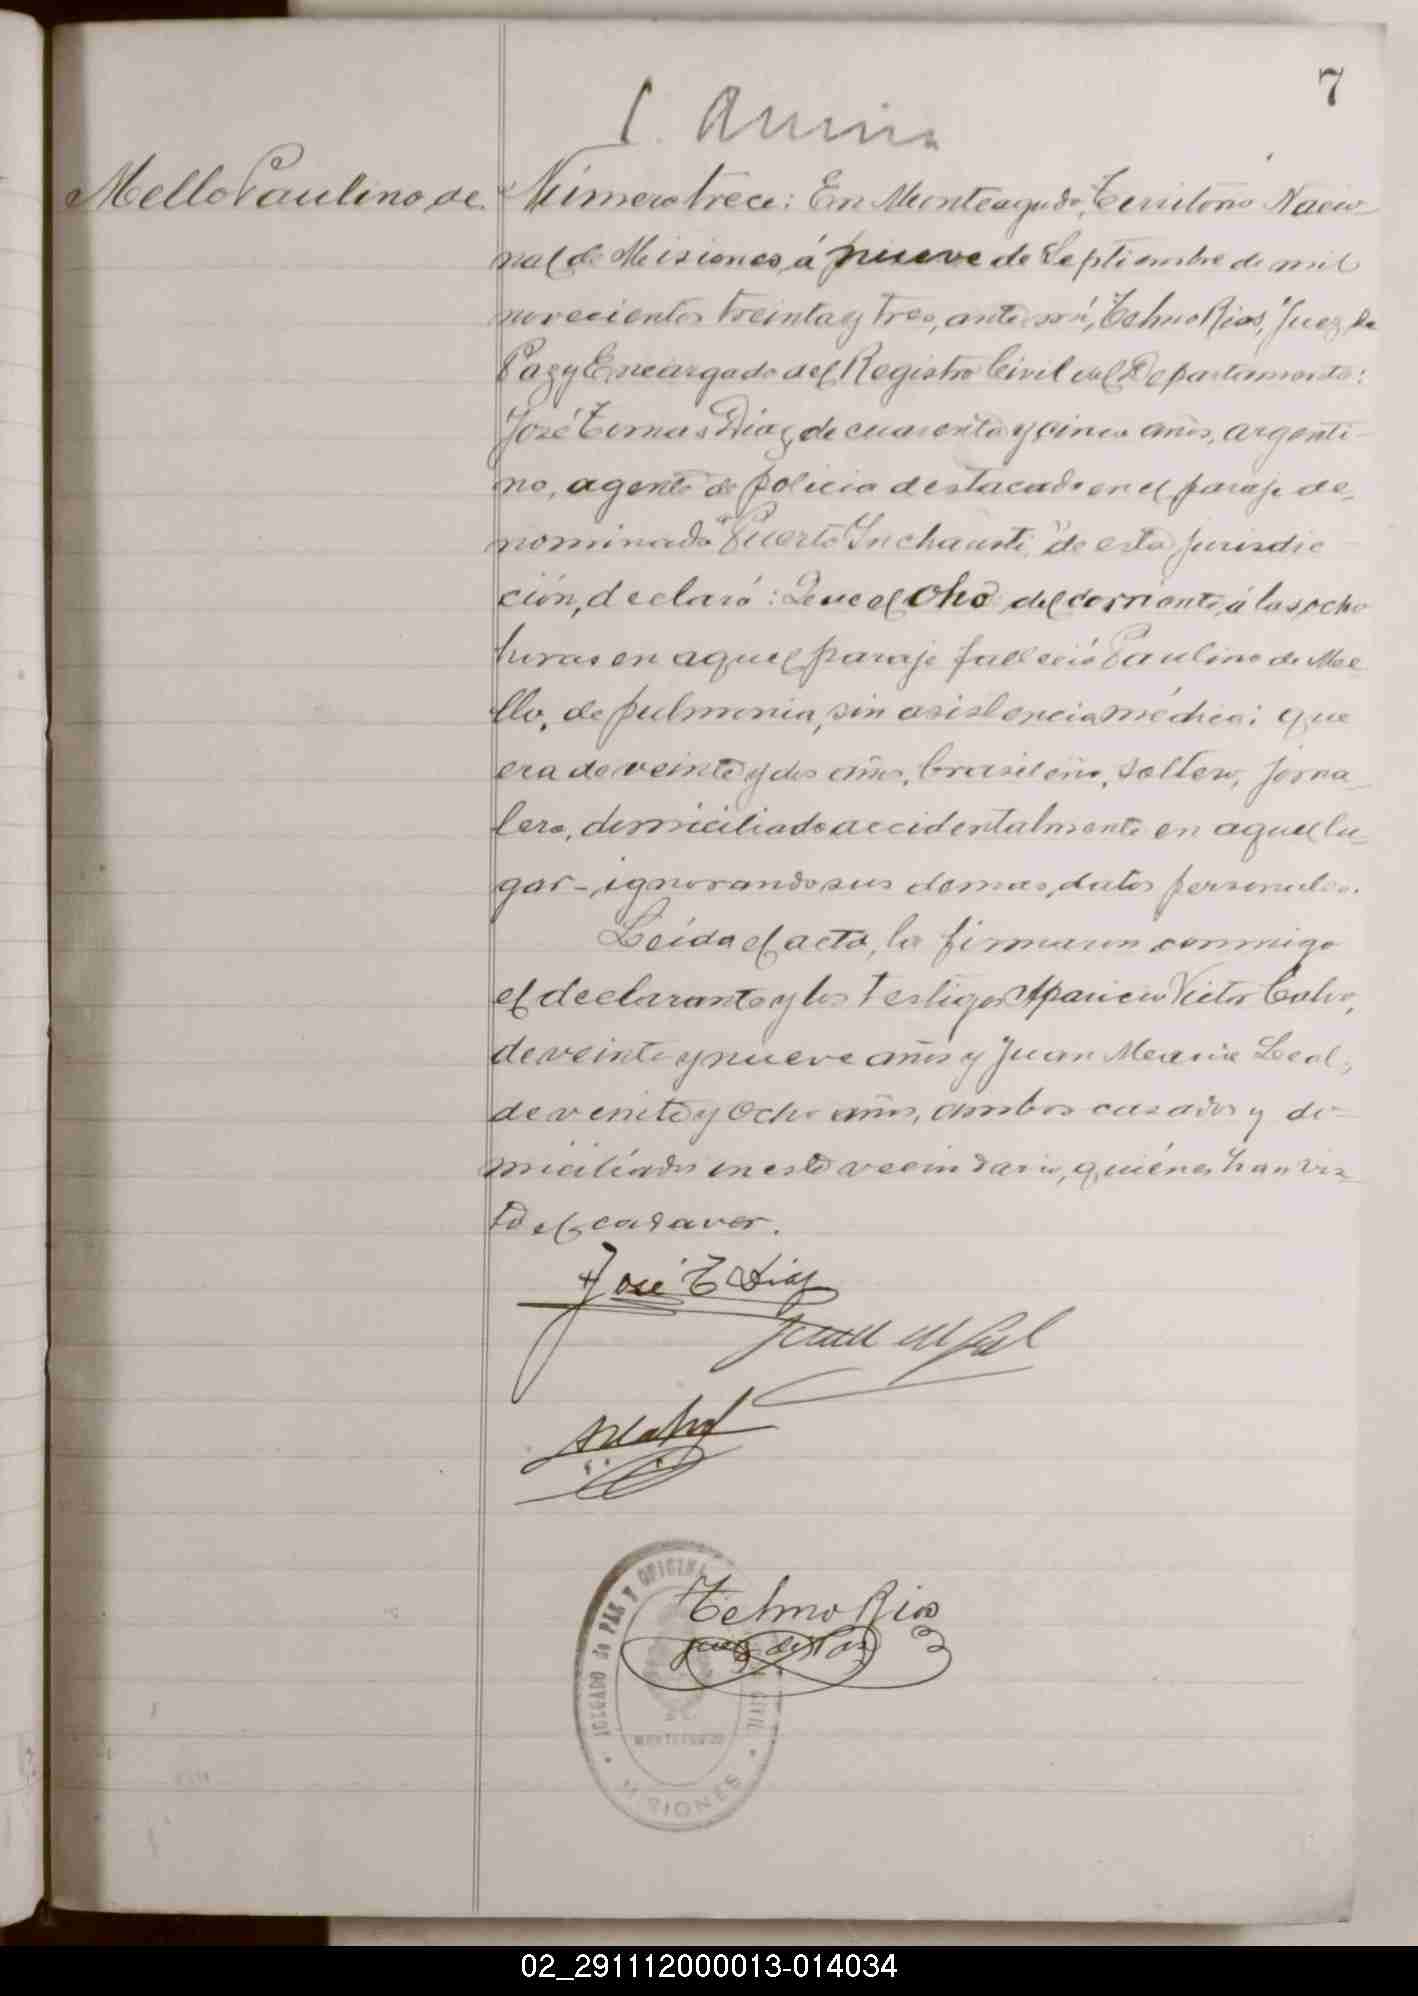 7
Mello Paulino de
Número trece: En Monteagudo, Territorio Nacio-
nal de Misiones, á nueve de Septiembre de mil
novecientos treinta y tres, ante mí, Telmo Rios, Juez de
Paz y Encargado del Registro Civil del Departamento:
José Tomas Diaz, de cuarenta y cinco años, argenti-
no, agente de policia destacado en el paraje de-
nominado "Puerto Inchausti" de esta jurisdic-
ción, declaró: Que el ocho del corriente, á las ocho
horas en aquel paraje falleció Paulino de Me-
llo, de pulmonia, sin asistencia médica; que
era de veinte y dos años, brasileño, soltero, jorna-
lero, domiciliado accidentalmente en aquel lu-
gar - ignorando sus demas datos personales.
Leída el acta, la firmaron conmigo
el declarante y los testigos Aparicio Victor Calvo,
de veinte y nueve años y Juan Maria Leal,
de veinte y ocho años, ambos casados y do-
miciliados en este vecindario, quiénes han vis-
to el cadaver.
José T Diaz
Juan M Leal
Telmo Rios
Juez de Paz
JUZGADO de PAZ Y OFICINA CIVIL
MONTEAGUDO
MISIONES
02_291112000013-014034